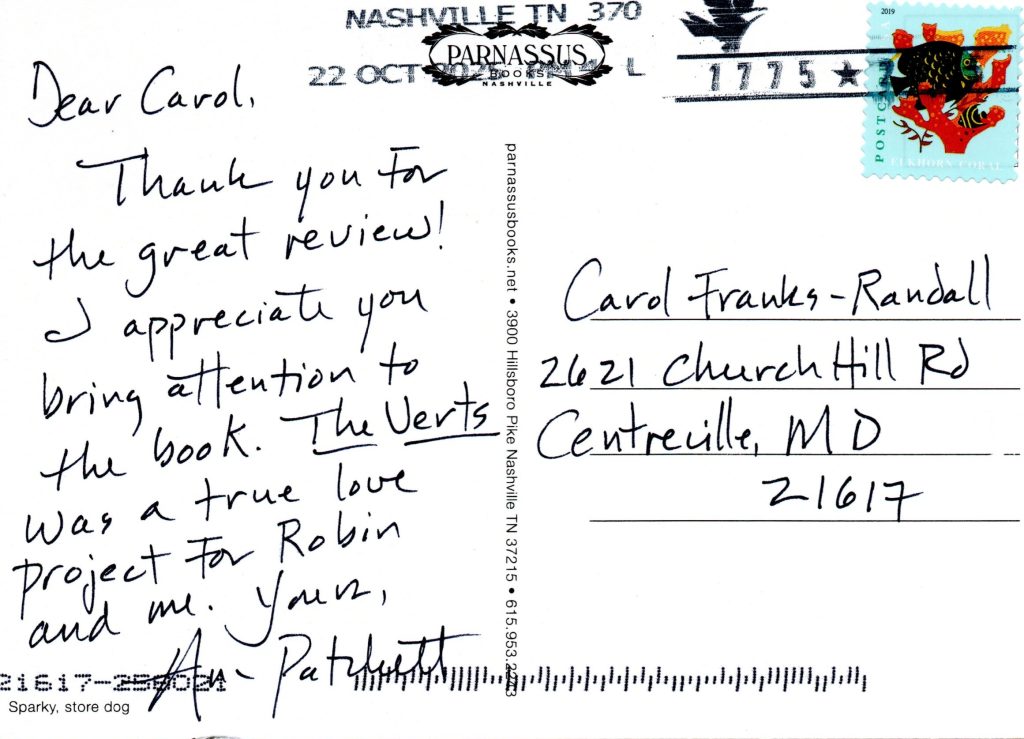 NASHVILLE TN 370
PARNASSUS
BOOKS
NASHVILLE
22 OCT L
1775 ★
2019
POSTCARD
ELKHORN CORAL
Dear Carol,
Thank you for
the great review!
I appreciate you
bring attention to
the book. The Verts
was a true love
project for Robin
and me. Yours,
Ann Patchett
parnassusbooks.net • 3900 Hillsboro Pike Nashville TN 37215 • 615.953.2243
Carol Franks-Randall
2621 Church Hill Rd
Centreville, MD
21617
Sparky, store dog